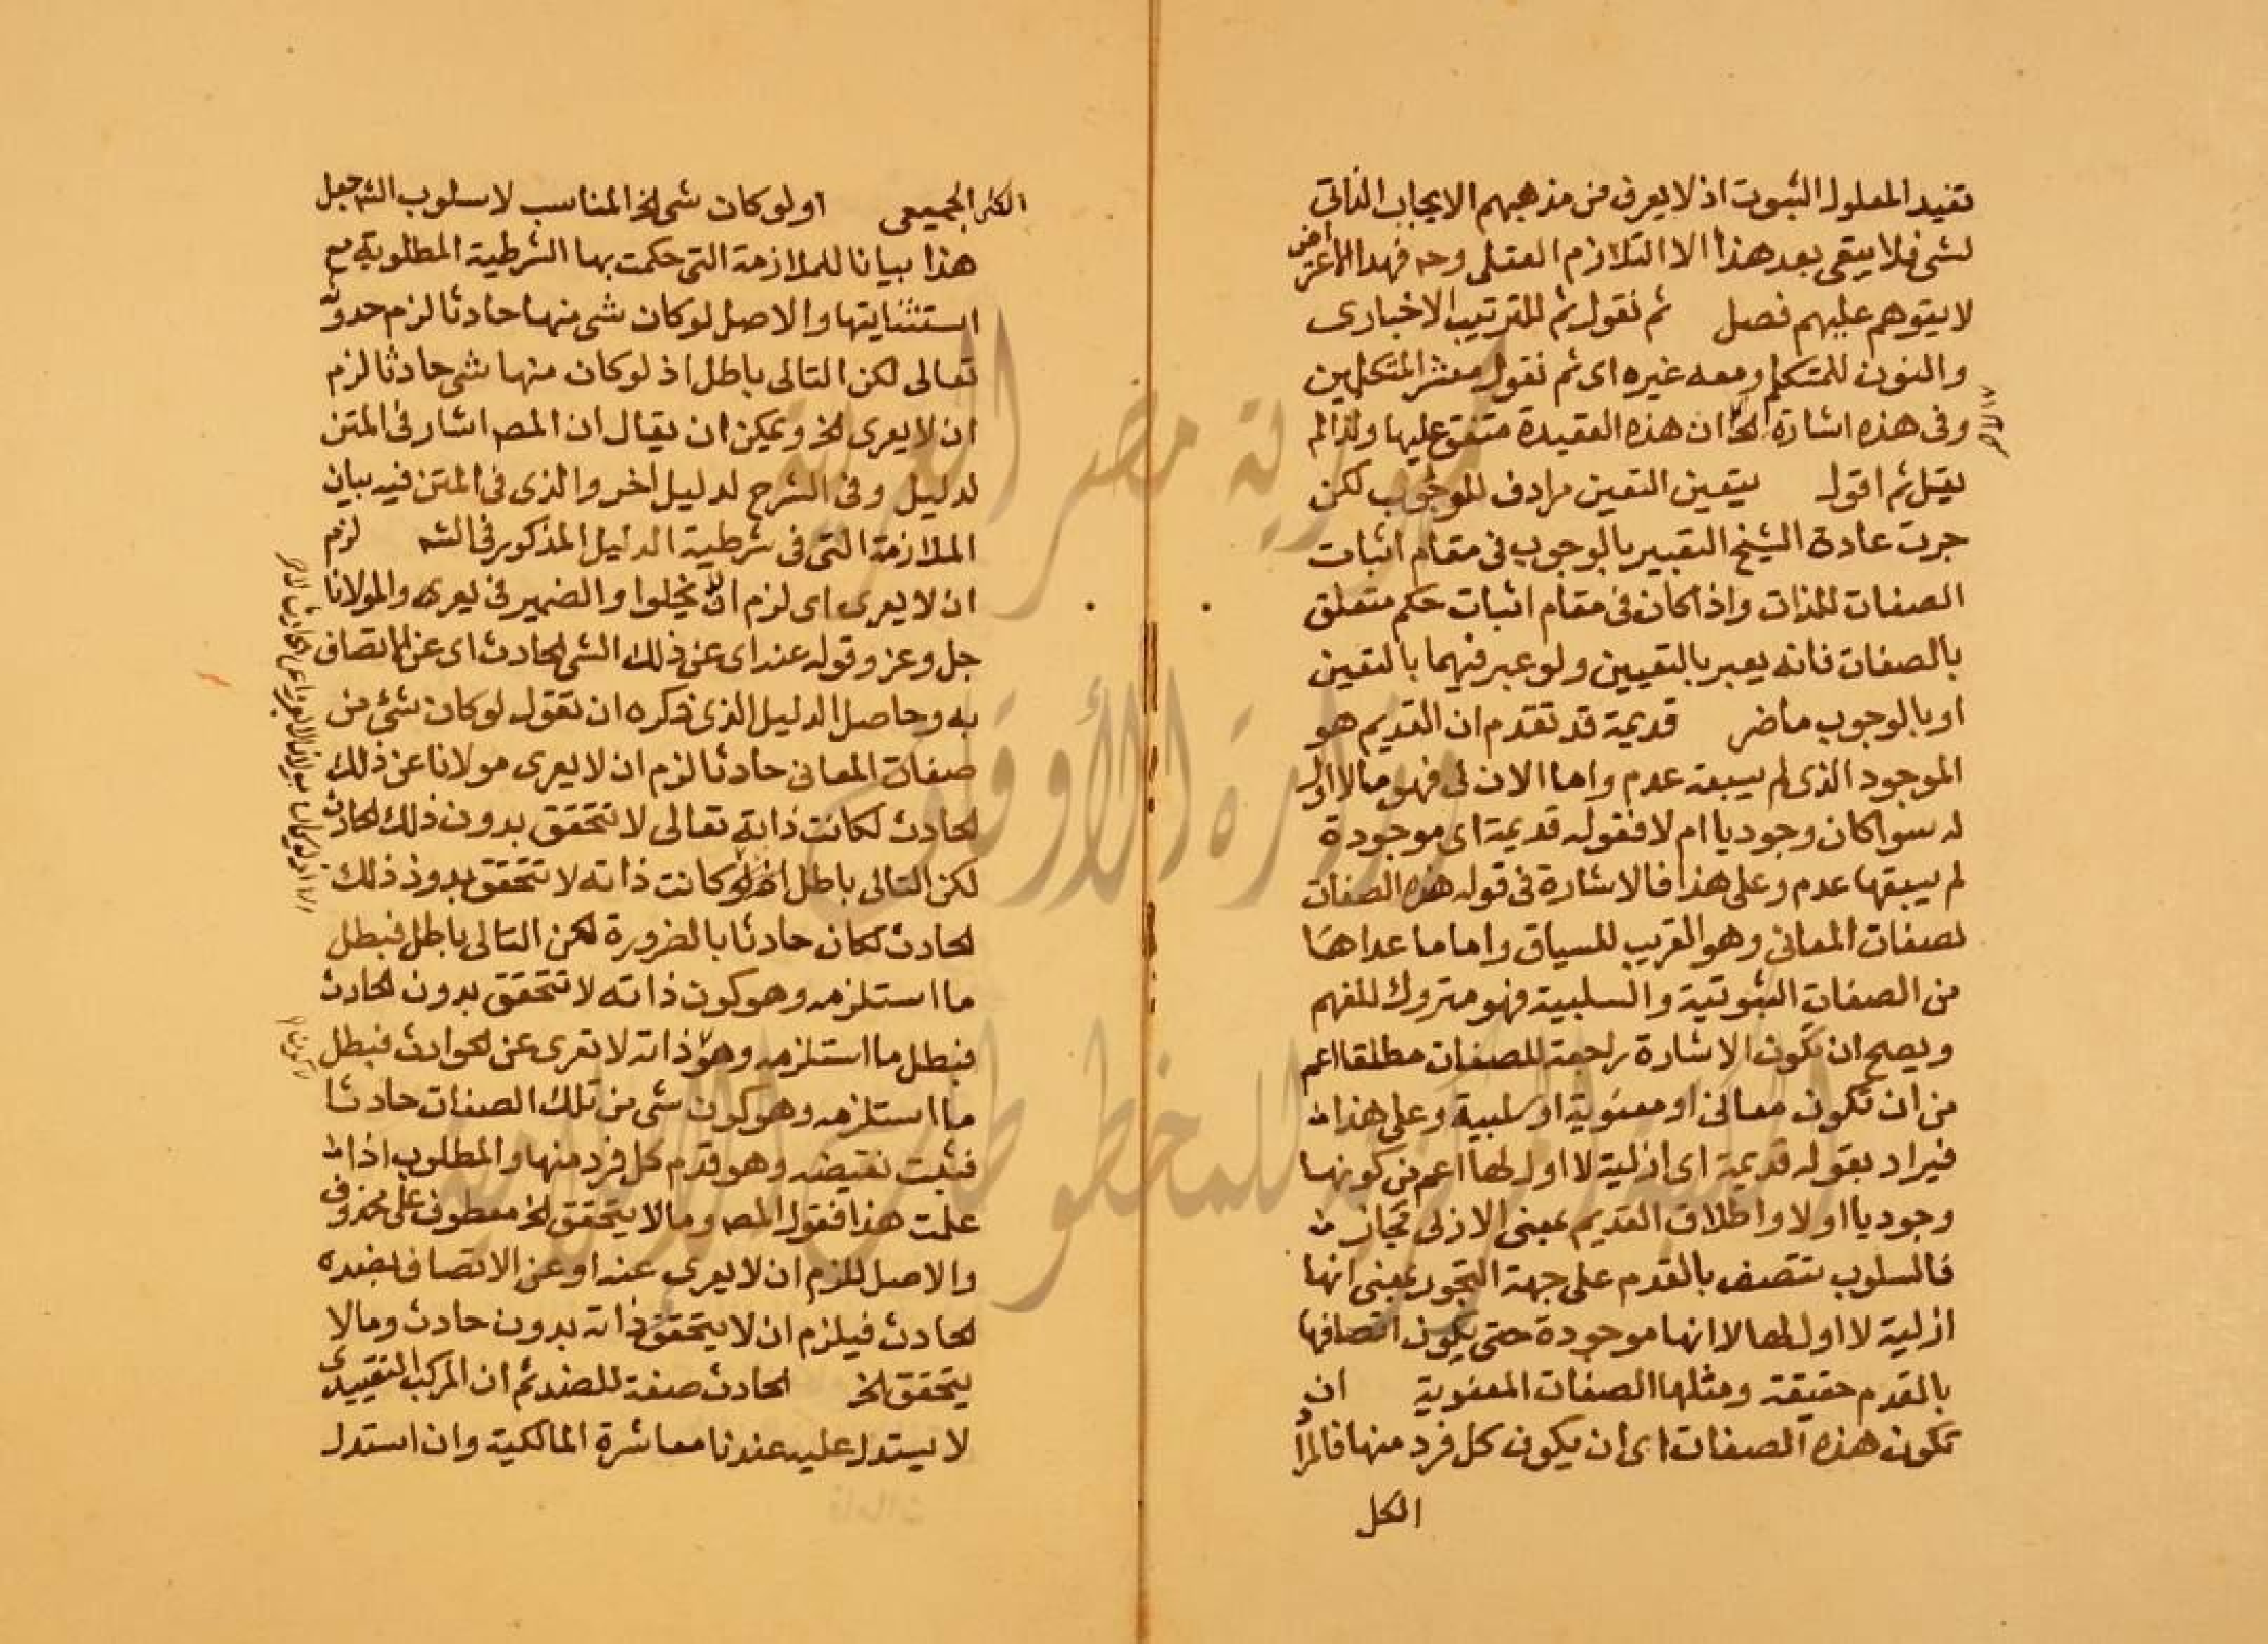 تفيد المعلول الثبوت اذ لا يعرف من مذهبهم الا الايجاب الذاتي
لشي فلا يبقى بعد هذا الا التلازم العقلي وحـ فهذا الاعتراض
لا يتوهم عليهم فصل ثم نقول ثم للترتيب الاخبارى
والنون للمتكلم ومعه غيره اى ثم نقول معشر المتكلمين
وفى هذه اشارة الى ان هذه العقيدة متفق عليها ولذا لم
يقل ثم اقول يتعين التعين مرادف للوجوب لكن
جرت عادة الشيخ التعبير بالوجوب فى مقام اثبات
الصفات للذات واذا كان فى مقام اثبات حكم متعلق
بالصفات فانه يعبر بالتعيين ولو عبر فيهما بالتعين
او بالوجوب ما ضر قديمة قد تقدم ان القديم هو
الموجود الذى لم يسبقه عدم واما الازلى فهو مالا اول
له سوا كان وجوديا ام لا فقوله قديمة اى موجودة
لم يسبقها عدم وعلى هذا فالاشارة فى قوله هذه الصفات
لصفات المعانى وهو القريب للسياق واما ما عداها
من الصفات الثبوتية والسلبية فهو متروك للفهم
ويصح ان تكون الاشارة راجعة للصفات مطلقا اعم
من ان تكون معانى او معنوية او سلبية وعلى هذا
فيراد بقوله قديمة اى ازلية لا اول لها اعم من كونها
وجوديا اولا واطلاق القديم بمعنى الازلى مجاز
فالسلوب تتصف بالقدم على جهة التجوز بمعنى انها
ازلية لا اول لها لا انها موجودة حتى يكون اتصافها
بالقدم حقيقة ومثلها الصفات المعنوية ان
تكون هذه الصفات اى ان يكون كل فرد منها فالمراد
الكل
الكل الجميعى او لو كان شى الخ المناسب لاسلوب الشـ جعل
هذا بيانا للملازمة التى حكمت بها الشرطية المطلوبة مع
استثنايتها والاصل لو كان شى منها حادثا لزم حدوثه
تعالى لكن التالى باطل اذ لو كان منها شى حادثا لزم
ان لا يعرى الخ ويمكن ان يقال ان المصـ اشار فى المتن
لدليل وفى الشرح لدليل اخر والذى فى المتن فيه بيان
الملازمة التى فى شرطية الدليل المذكور فى الشـ لزم
ان لا يعرى اى لزم ان لا يخلوا والضمير فى يعرى والمولانا
جل وعز وقوله عنه اى عن ذلك الشى الحادث اى عن الاتصاف
به وحاصل الدليل الذى ذكره ان تقول لو كان شئ من
صفات المعانى حادثا لزم ان لا يعرى مولانا عن ذلك
الحادث لكانت ذاته تعالى لا تتحقق بدون ذلك الحادث
لكن التالى باطل اذ لو كانت ذاته لا تتحقق بدون ذلك
الحادث لكان حادثا بالضرورة لكن التالى باطل فبطل
ما استلزمه وهو كون ذاته لا تتحقق بدون الحادث
فبطل ما استلزمه وهو ذاته لا تعرى عن الحوادث فبطل
ما استلزمه وهو كون شى من تلك الصفات حادثا
فثبت نقيضه وهو قدم كل فرد منها والمطلوب اذا
علمت هذا فقول المصـ وما لا يتحقق الخ معطوف على محذوف
والاصل للزم ان لا يعرى عنه او عن الاتصاف بضده
الحادث فيلزم ان لا يتحقق ذاته بدون حادث وما لا
يتحقق الخ الحادث صفة للضد ثم ان المركب التقييدى
لا يستدل عليه عندنا معاشرة المالكية وان استدل